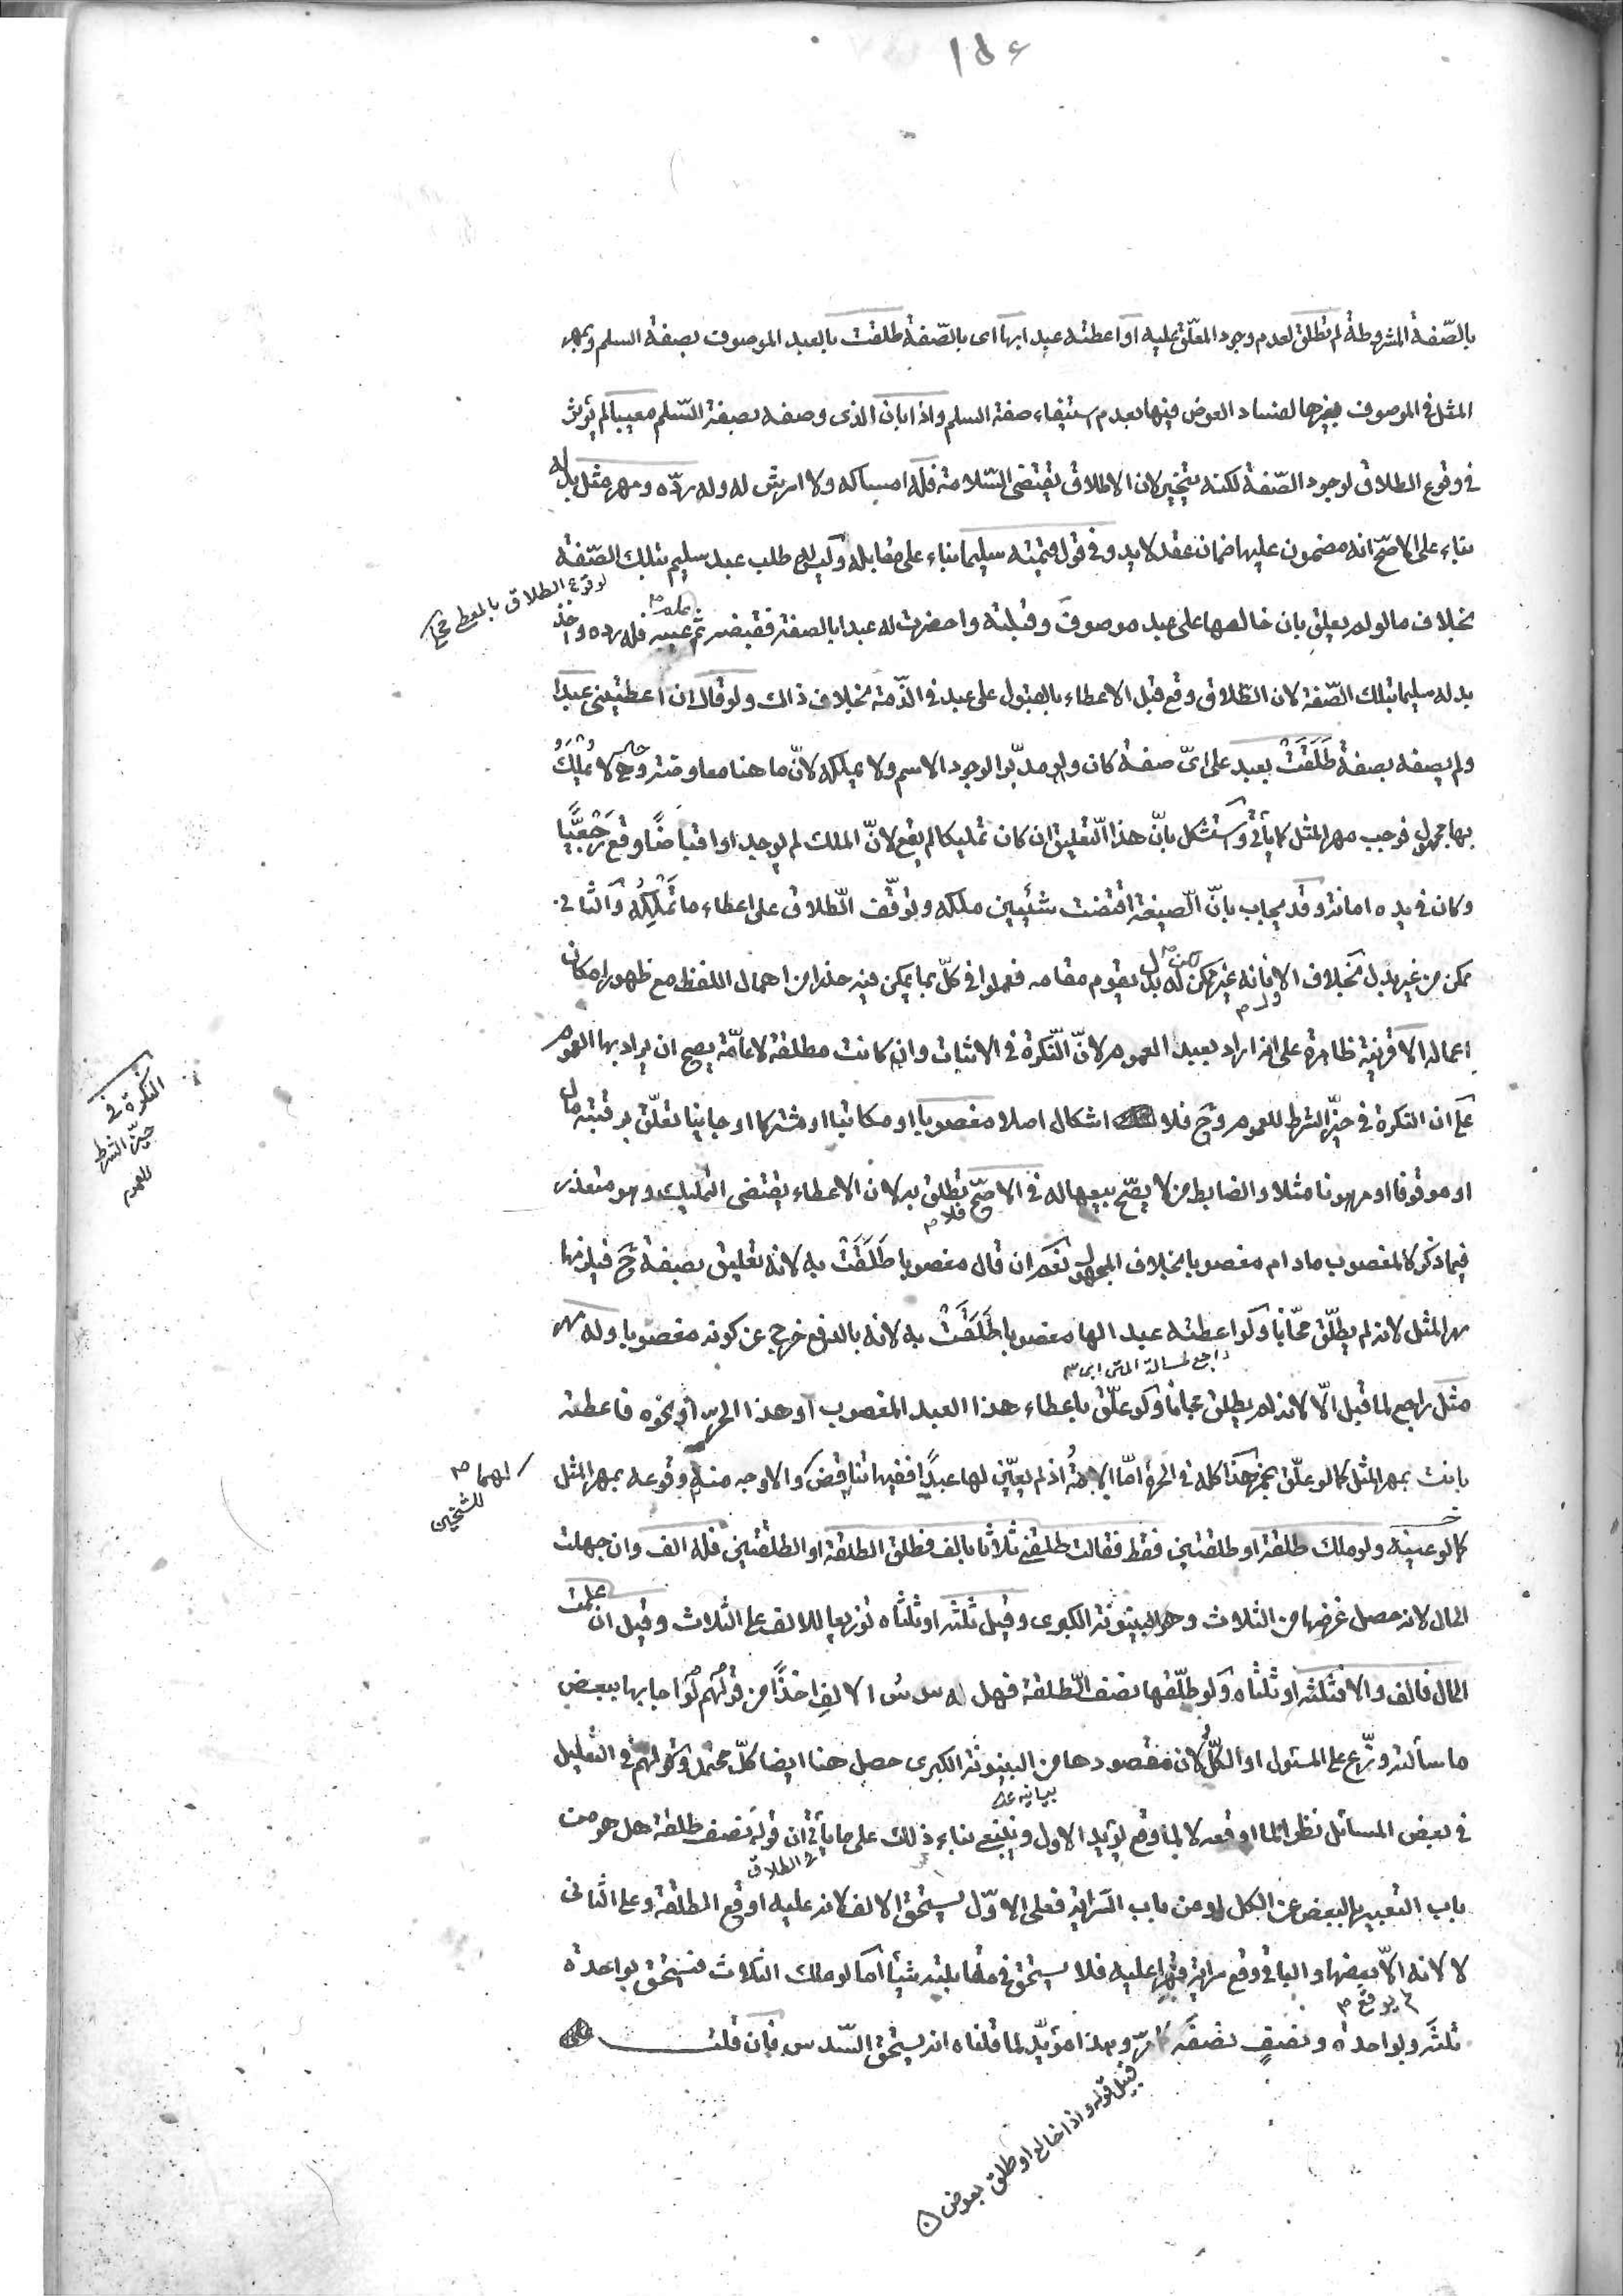 ١٥٤
بالصّفة المشروطة لم تطلق لعدم وجود المعلّق عليه او اعطته عبدا بها اى بالصّفة طلقت بالعبد الموصوف بصفة السلم وبمهر
المثل فى الموصوف بغيرها لفساد العوض فيها بعدم استيفاء صفة السلم واذا بان الذى وصفه بصفة السّلم معيبا لم يؤثر
فى وقوع الطلاق لوجود الصّفة لكنه يتخير لان الاطلاق يقتضى السّلامة فله امساكه ولا ارش له وله ردّه ومهر مثل بدله
بناء على الاصحّ انه مضمون عليها ضمان عقد لا يد وفى قول قيمته سليما بناء على مقابله وليس له طلب عبد سليم بتلك الصّفة
لوقوع الطلاق بالمعطى
بخلاف ما لو لم يعلق بان خالعها على عبد موصوف وقبلته واحضرت له عبدا بالصفة فقبضه ثم علم عيبه فله رده واخذ
بدله سليما بتلك الصّفة لان الطّلاق وقع قبل الاعطاء بالقبول على عبد فى الذّمة بخلاف ذاك ولو قال ان اعطيتنى عبدا
ولم يصفه بصفة طَلَقَتْ بعبد على اىّ صفة كان ولو مدبّرا لوجود الاسم ولا يملكه لانّ ما هنا معاوضة وهى لا تملك
بها مجهول فوجب مهر المثل كما يأتى واستشكل بانّ هذا التّعليق ان كان تمليكا لم يقع لانّ الملك لم يوجد او اقباضًا وقع رَجْعيًّا
وكان فى يده امانة وقد يجاب بانّ الّصيغة اقتضت شيئين ملكه وتوقّف الطّلاق على اعطاء ما تَمْلِكُه والثانى
ممكن من غير بدل بخلاف الاول فانه غير ممكن لكن له بدل يقوم مقامه فعملوا فى كلّ بما يمكن فيه حذرا من اهمال اللفظ مع ظهور امكان
اعماله الا قرينة ظاهرة على انه اراد بعبد العموم لانّ النّكرة فى الاثبات وان كانت مطلقة لا عامّة يصح ان يراد بها العموم
على ان النكرة فى حيّز الشرط للعموم وح فلا اشكال اصلا مغصوبا او مكاتبا او مشتركا او جانيا تعلّق برقبته مال
النكرة فى
حيّز الشرط
للعموم
او موقوفا او مرهونا مثلا والضابط من لا يصحّ بيعها له فى الاصحّ فلا تطلق به لان الاعطاء يقتضى التمليك وهو متعذر
فيما ذكر كالمغصوب ما دام مغصوبا بخلاف المجهول نعم ان قال مغصوبا طَلَقَتْ به لانه تعليق بصفة ح فيلزمها
مهر المثل لانه لم يطلّق مجّانا ولو اعطته عبدا لها مغصوبا طَلَقَتْ به لانه بالدفع خرج عن كونه مغصوبا وله مهر
مثل راجع لما قبل الّا لانه لم يطلق مجانا ولو علّق باعطاء هذا العبد المغصوب او هذا الحرّ او نحوه فاعطته
بانت بمهر المثل كما لو علّق بخمر هذا كله فى الحرة امّا الامة اذ لم يعيّن لها عبدًا ففيها تناقض والاوجه منه وقوعه بمهر المثل
لهما
للشيخين
كما لو عينه ولو ملك طلقة او طلقتين فقط فقالت طلقنى ثلاثا بالف فطلق الطلقة او الطلقتين فله الف وان جهلت
الحال لانه حصل غرضها من الثلاث وهو البينونة الكبرى وقيل ثلثه او ثلثاه توزيعا للالف على الثلاث وقيل ان علمت
الحال فالف والا فثلثه او ثلثاه ولو طلّقها نصف الطّلقة فهل له سدس الالف اخذًا من قولهم لو اجابها ببعض
ما سألته وزّع على المسئول او الكلّ لان مقصودها من البينونة الكبرى حصل هنا ايضا كلّ محتمل وقولهم فى التعليل
فى بعض المسائل نظرا لما اوقعه لا لما وقع يؤيد الاول وينبغى بناء ذلك على ما يأتى ان قوله نصف طلقة هل هو من
باب التعبير بالبعض عن الكل او من باب السّراية فعلى الاوّل يستحق الالف لانه عليه اوقع الطلقة وعلى الثانى
لا لانه لم يوقع الا بعضها والباقى وقع سراية قهرا عليه فلا يستحق فى مقابلته شيئا اما لو ملك الثلاث فيستحق بواحدة
ثلثه وبواحدة ونصف نصفه كما مرّ وهذا مؤيّد لما قلناه انه يستحق السّدس فان قلت
قبيل قوله واذا خالع او طلق بعوض